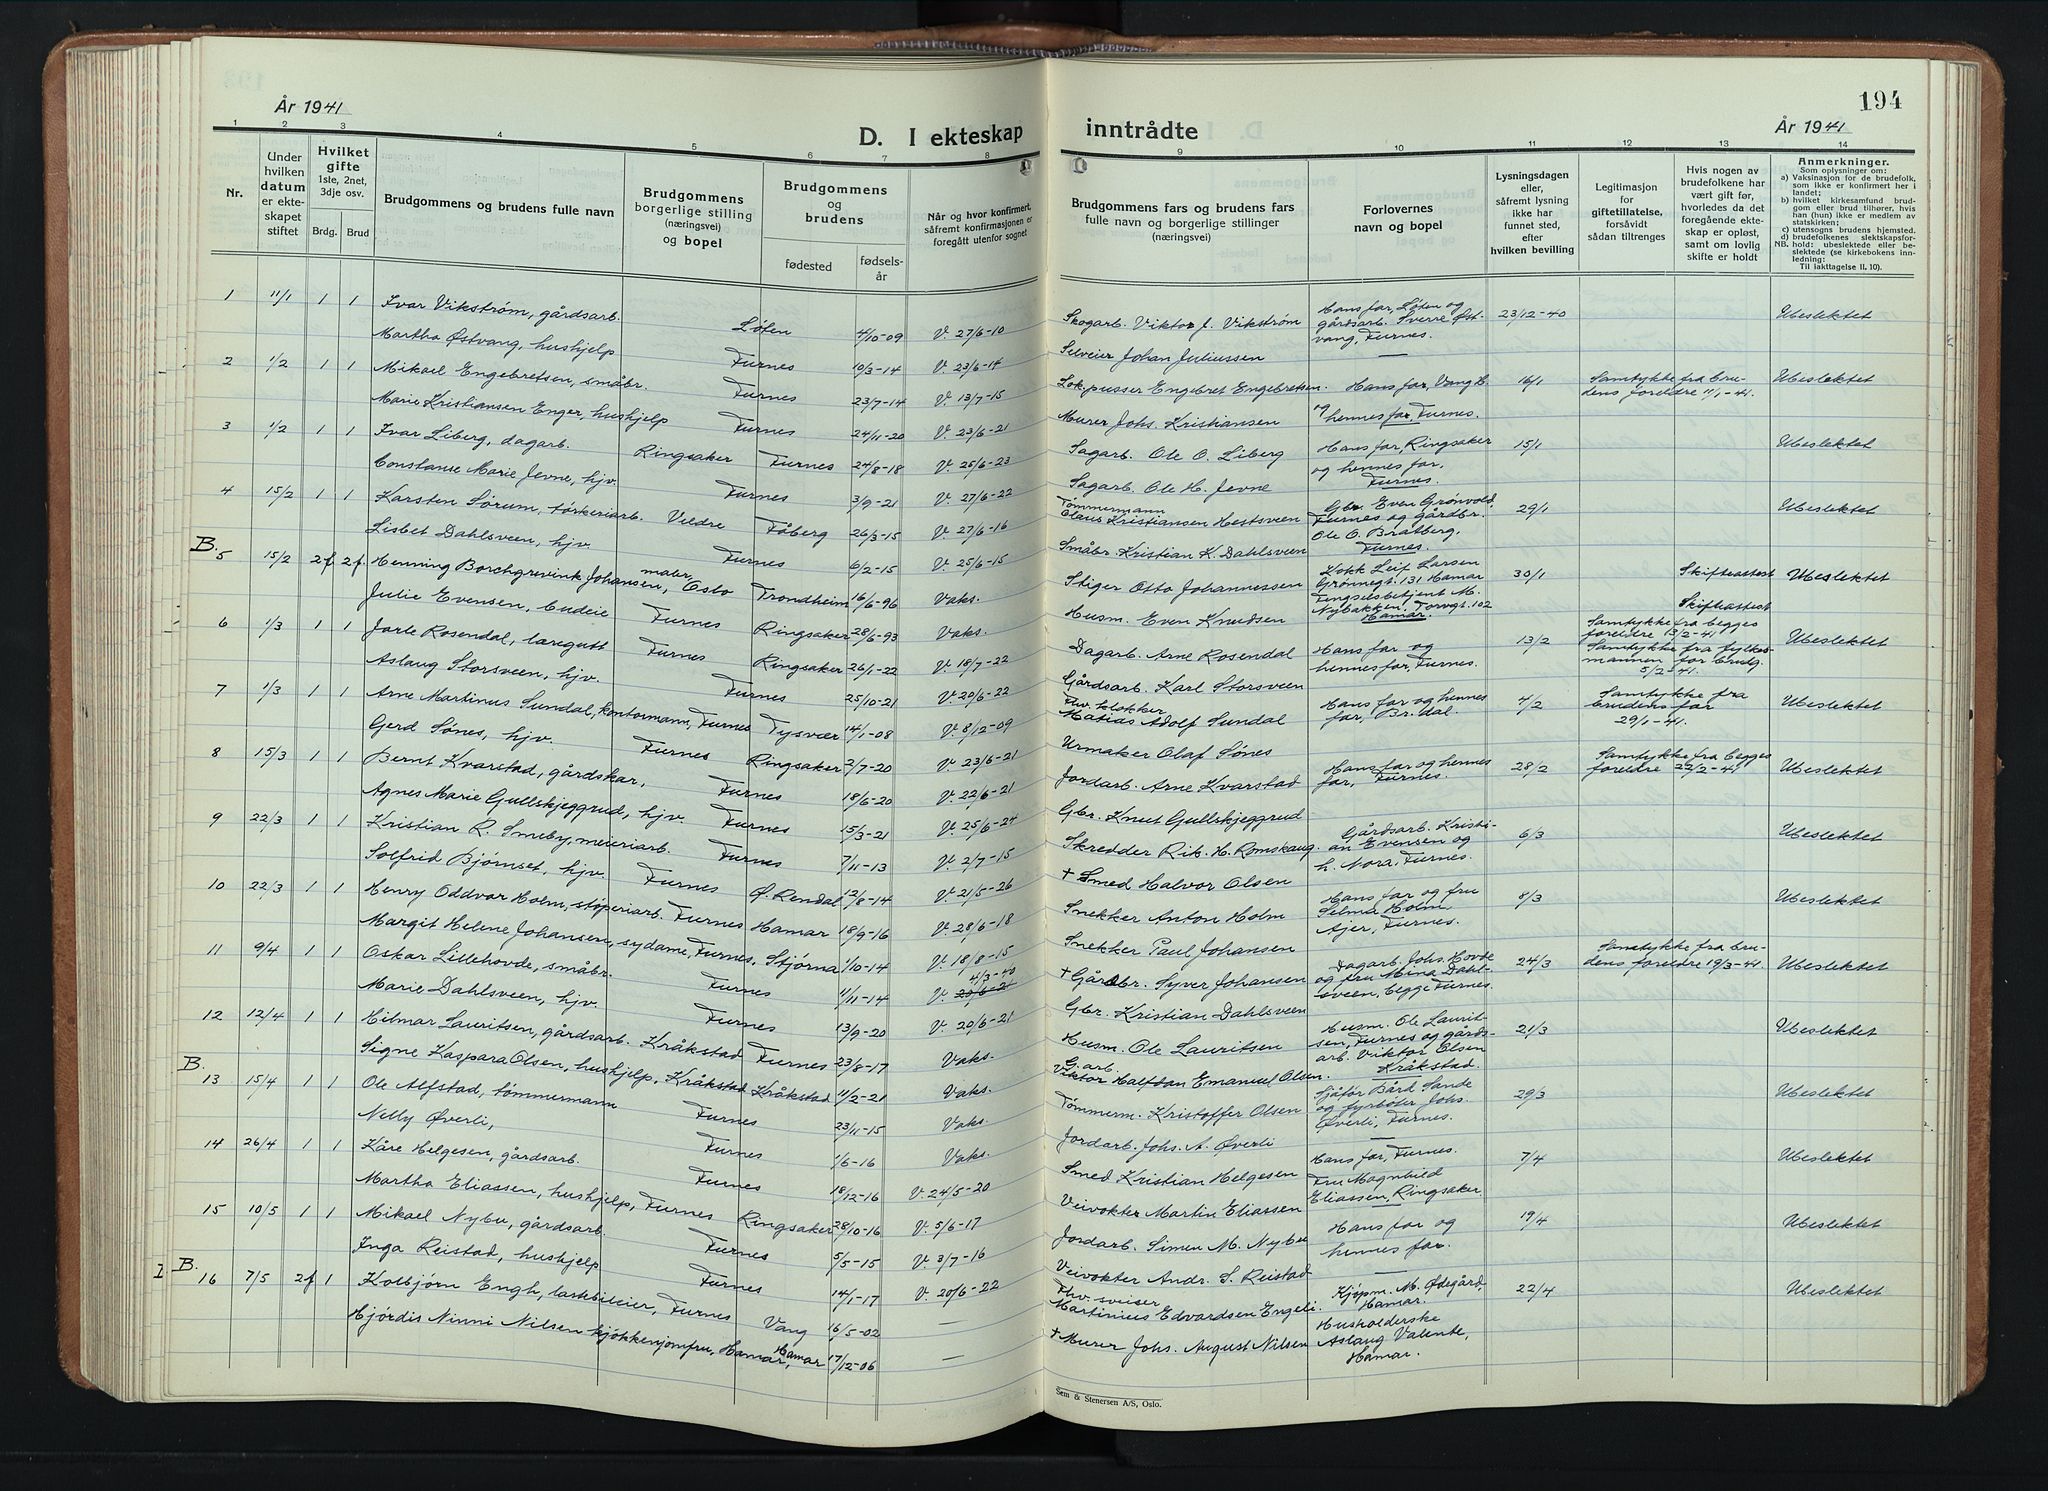 År 1941
D. I ekteskap
inntrådte
År 1941
194
1 2 3 4 5 6 7 8 9 10 11 12 13 14
Nr.
Under hvilken datum er ekteskapet stiftet
Hvilket gifte 1ste, 2net, 3dje osv.
Brdg. Brud
Brudgommens og brudens fulle navn
Brudgommens borgerlige stilling (næringsvei) og bopel
Brudgommens og brudens
fødested fødselsår
Når og hvor konfirmert, såfremt konfirmasjonen er foregått utenfor sognet
Brudgommens fars og brudens fars fulle navn og borgerlige stillinger (næringsvei)
Forlovernes navn og bopel
Lysningsdagen eller, såfremt lysning ikke har funnet sted, efter hvilken bevilling
Legitimasjon for giftetillatelse, forsåvidt sådan tiltrenges
Hvis nogen av brudefolkene har vært gift før, hvorledes da det foregående ekteskap er opløst, samt om lovlig skifte er holdt
Anmerkninger.
Som oplysning om:
a) Vaksinasjon for de brudefolk, som ikke er konfirmert her i landet;
b) hvilket kirkesamfund brudgom eller brud tilhører, hvis han (hun) ikke er medlem av statskirken;
c) utensogns brudens hjemsted.
d) brudefolkenes slektskapsforhold: ubeslektede eller beslektede (se kirkebokens innledning:
NB.
Til iakttagelse II. 10).
1 11/1 1 1 Ivar Vikstrøm, gårdsarb. Løten 4/10-09 V. 27/6-10 Skogarb. Viktor J. Vikström Hans far, Løten og gårdsarb. Sverre Østvang, Furnes. 23/12-40 Ubeslektet
Martha Østvang, hushjelp Furnes 10/3-14 V. 23/6-14 Selveier Johan Juliussen —
2 1/2 1 1 Mikael Engebretsen, småbr. Furnes 23/7-14 V. 13/7-15 Lok.pusser Engebret Engebretsen. Hans far, Vang H. 16/1 Samtykke fra brudens foreldre 11/1-41. Ubeslektet
Marie Kristiansen Enger, hushjelp Furnes 24/11-20 V. 23/6-21 Murer Johs. Kristiansen og hennes far, Furnes.
3 1/2 1 1 Ivar Liberg, dagarb. Ringsaker Furnes 24/8-18 V. 25/6-23 Sagarb. Ole O. Liberg Hans far, Ringsaker og hennes far, Furnes. 15/1 Ubeslektet
Constanse Marie Jevne, hjv. Furnes 3/9-21 V. 27/6-22 Sagarb. Ole H. Jevne
4 15/2 1 1 Karsten Sørum, tørkeriarb. Veldre Fåberg 26/3-15 V. 27/6-16 Tømmermann Claus Kristiansen Hestsveen Gbr. Even Grønvold, Furnes og gårdbr. Ole O. Bratberg, Furnes. 29/1 Ubeslektet
Lisbet Dahlsveen, hjv. Furnes 6/2-15 V. 25/6-15 Småbr. Kristian K. Dahlsveen
B. 5 15/2 2f 2f. Henning Borchgrevink Johansen, maler, Oslo Trondheim 16/6-96 Vaks. Stiger Otto Johannessen Kokk Leif Larsen Grønnegt. 131 Hamar 30/1 Skifteattest Ubeslektet
Julie Evensen, budeie Furnes Ringsaker 28/6-93 Vaks. Husm. Even Knudsen Fengselsbetjent M. Nybakken, Torvgt. 102 Hamar. Skifteattest
6 1/3 1 1 Jarle Rosendal, læregutt Furnes Ringsaker 26/1-22 V. 18/7-22 Dagarb. Arne Rosendal Hans far og hennes far, Furnes. 13/2 Samtykke fra begges foreldre 13/2-41. Samtykke fra fylkesmannen for brudg. 5/2-41. Ubeslektet
Aslaug Storsveen, hjv. Furnes 25/10-21 V. 20/6-22 Gårdsarb. Karl Storsveen
7 1/3 1 1 Arne Martinus Sundal, kontormann, Furnes Tysvær 14/1-08 V. 8/12-09 Fhv. klokker Matias Adolf Sundal Hans far og hennes far, Br.dal. 4/2 Samtykke fra brudens far 29/1-41. Ubeslektet
Gerd Sønes, hjv. Furnes Ringsaker 2/7-20 V. 23/6-21 Urmaker Olaf Sønes
8 15/3 1 1 Bernt Kvarstad, gårdskar, Furnes 18/6-20 V. 22/6-21 Jordarb. Arne Kvarstad Hans far og hennes far, Furnes. 28/2 Samtykke fra begges foreldre 22/2-41 Ubeslektet
Agnes Marie Gullskjeggrud, hjv. Furnes 15/3-21 V. 25/6-24 Gbr. Knut Gullskjeggrud
9 22/3 1 1 Kristian R. Smeby, meieriarb. Furnes 7/11-13 V. 2/7-15 Skredder Rik. H. Romskaug. Gårdsarb. Kristian Evensen og h. Nora, Furnes. 6/3 Ubeslektet
Solfrid Bjørnset, hjv. Furnes Ø. Rendal 12/8-14 V. 21/5-26 + Smed Halvor Olsen
10 22/3 1 1 Henry Oddvar Holm, støperiarb. Furnes Hamar 18/9-16 V. 28/6-18 Snekker Anton Holm Hans far og fru Selma Holm Ajer, Furnes. 8/3 Ubeslektet
Margit Helene Johansen, sydame, Furnes, Stjørna 1/10-14 V. 18/8-15 Snekker Paul Johansen
11 9/4 1 1 Oskar Lillehovde, småbr. Furnes 1/11-14 V. 20/6-21 4/3-40 + Gårdbr. Syver Johansen Dagarb. Johs. Hovde og fru Mina Dahlsveen, begge Furnes. 24/3 Samtykke fra brudens foreldre 19/3-41. Ubeslektet
Marie Dahlsveen, hjv. Furnes 13/9-20 V. 20/6-21 Gbr. Kristian Dahlsveen
12 12/4 1 1 Hilmar Lauritsen, gårdsarb. Kråkstad Furnes 23/8-17 Vaks. Husm. Ole Lauritsen Husm. Ole Lauritsen, Furnes og gårdsarb. Viktor Olsen Kråkstad. 21/3 Ubeslektet
Signe Kaspara Olsen, hushjelp, Kråkstad Kråkstad 11/2-21 Vaks. G.arb. Viktor Halfdan Emanuel Olsen.
B. 13 15/4 1 1 Ole Alfstad, tømmermann Furnes 23/11-15 Vaks. Tømmerm. Kristoffer Olsen Sjåfør Bård Sande og fyrbøter Johs. Øverli, Furnes. 29/3 Ubeslektet
Nelly Øverli, Furnes 1/6-16 Vaks. Jordarb. Johs. A. Øverli —
14 26/4 1 1 Kåre Helgesen, gårdsarb. Furnes 18/12-16 V. 24/5-20 Smed Kristian Helgesen Hans far, Furnes. 7/4 Ubeslektet
Martha Eliassen, hushjelp, Furnes Ringsaker 28/10-16 V. 5/6-17 Veivokter Martin Eliassen Fru Magnhild Eliassen, Ringsaker
15 10/5 1 1 Mikael Nybu, gårdsarb. Furnes 5/5-15 V. 3/7-16 Jordarb. Simen M. Nybu Hans far og hennes far. 19/4 Ubeslektet
Inga Reistad, hushjelp Furnes 14/1-17 V. 20/6-22 Veivokter Andr. S. Reistad —
I B. 16 7/5 2f 1 Kolbjørn Engh, lastebileier, Furnes Vang 16/5-02 — Fhv. sveiser Martinius Edvardsen Engeli. Kjøpm. M. Ødegård, Hamar. 22/4 Ubeslektet
Hjørdis Ninni Nilsen kjøkkenjomfru, Hamar, Hamar 17/12-06 — + Murer Johs. August Nilsen Husholderske Aslaug Valente, Hamar.
Sem & Stenersen A/S, Oslo.